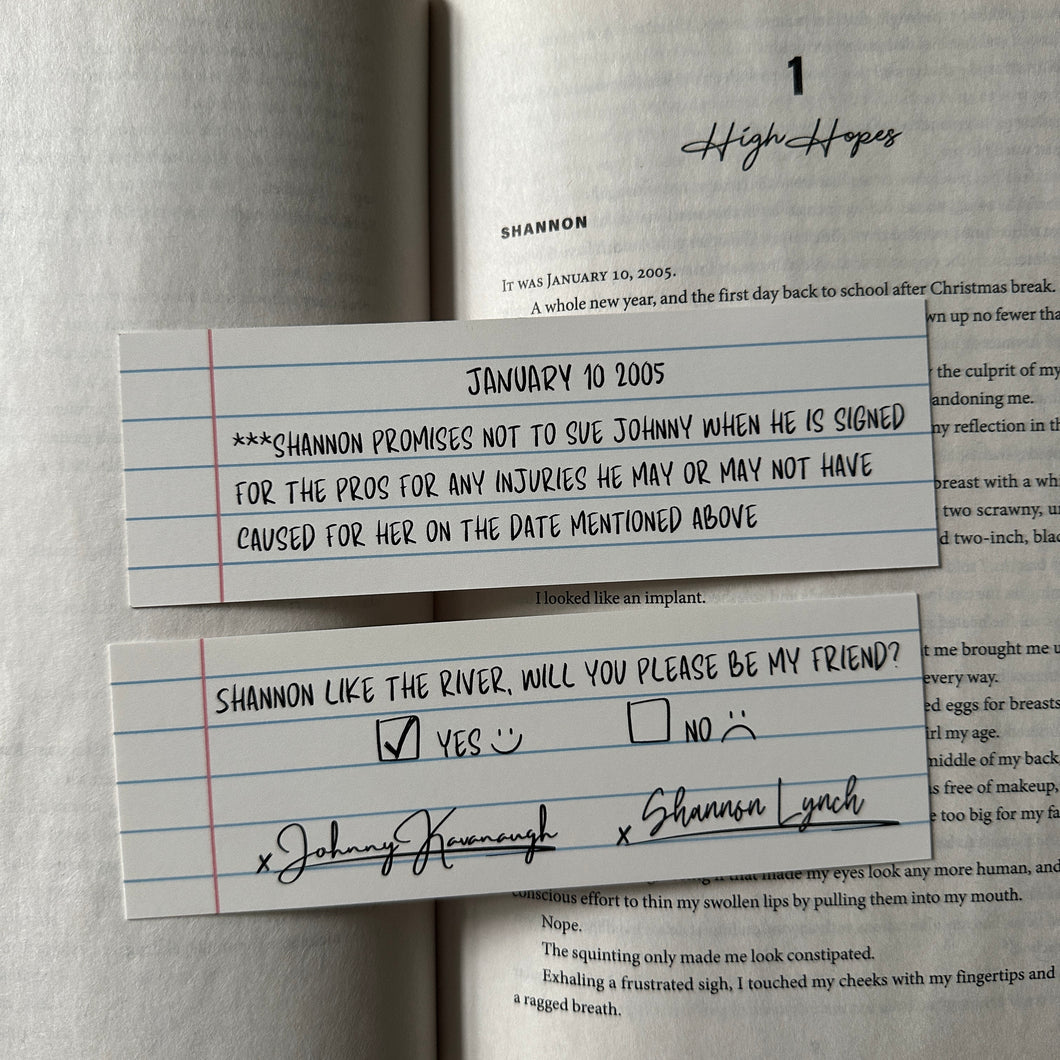 1
High Hopes
SHANNON
IT WAS JANUARY 10, 2005.
A whole new year, and the first day back to school after Christmas break.
wn up no fewer tha
the culprit of my
andoning me.
ny reflection in th
breast with a wh
two scrawny, u
d two-inch, blac
JANUARY 10 2005
***SHANNON PROMISES NOT TO SUE JOHNNY WHEN HE IS SIGNED
FOR THE PROS FOR ANY INJURIES HE MAY OR MAY NOT HAVE
CAUSED FOR HER ON THE DATE MENTIONED ABOVE
I looked like an implant.
t me brought me u
every way.
ed eggs for breasts
irl my age.
middle of my back
s free of makeup,
e too big for my fa
SHANNON LIKE THE RIVER, WILL YOU PLEASE BE MY FRIEND?
YES NO
x Johnny Kavanaugh x Shannon Lynch
it that made my eyes look any more human, and
conscious effort to thin my swollen lips by pulling them into my mouth.
Nope.
The squinting only made me look constipated.
Exhaling a frustrated sigh, I touched my cheeks with my fingertips and
a ragged breath.